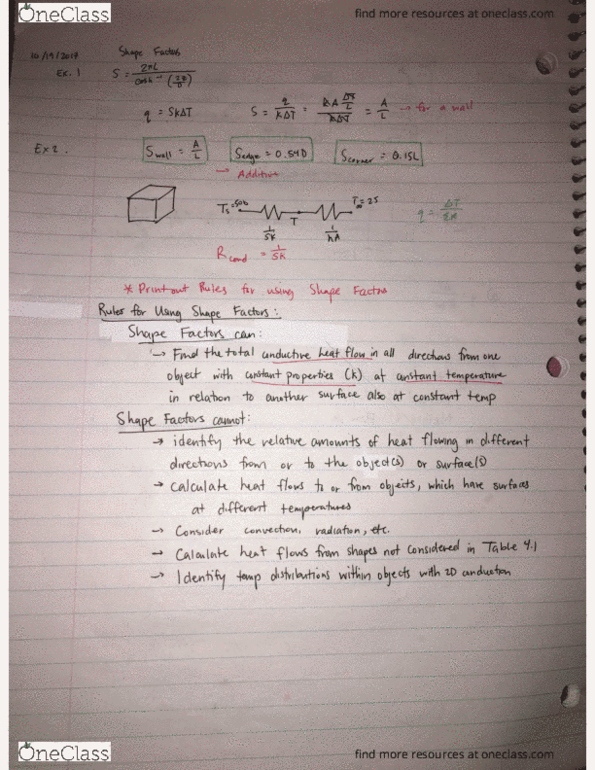 OneClass
find more resources at oneclass.com
10/19/2017 Shape Factors
Ex. 1 S = 2πL / cosh⁻¹ ( )
q = SkΔT S = q/kΔT = kA ΔT/L / kΔT = A/L → for a wall
Ex 2. S wall = A/L S edge = 0.54D S corner = 0.15L
→ Additive
Ts = 500 T T∞ = 25 q = ΔT/ΣR
1/Sk 1/hA
R cond = 1/Sk
* Print out Rules for using Shape Factors
Rules for Using Shape Factors:
Shape Factors can:
→ Find the total conductive heat flow in all directions from one
object with constant properties (k) at constant temperature
in relation to another surface also at constant temp
Shape Factors cannot:
→ identify the relative amounts of heat flowing in different
directions from or to the object(s) or surface(s)
→ Calculate heat flows to or from objects, which have surfaces
at different temperatures
→ Consider convection, radiation, etc.
→ Calculate heat flows from shapes not considered in Table 4.1
→ Identify temp distributions within objects with 2D conduction
OneClass
find more resources at oneclass.com